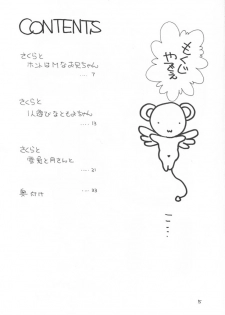 CONTENTS
もくじ
やでぇ
さくらと
ホントはMなお兄ちゃん
.... 7
さくらと
1人遊びなともよちゃん
.... 19
さくらと
雪兎と月さんと
.... 31
奥付け
.... 49
5